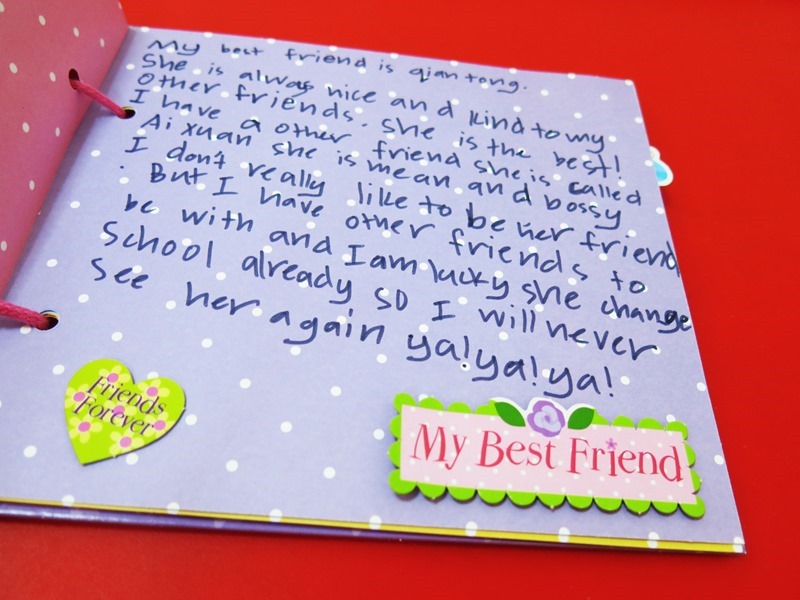 My best friend is qian tong.
She is always nice and kind to my
Other friends. She is the best!
I have a other friend she is called
Ai xuan she is mean and bossy
I don't really like to be her friend
. But I have other friends to
be with and I am lucky she change
School already so I will never
See her again ya! ya! ya!
Friends
Forever
My Best Friend